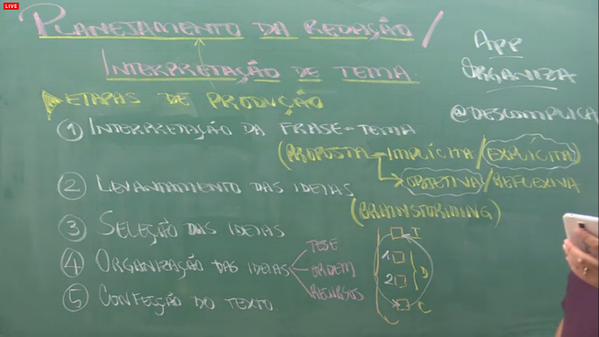 LIVE
PLANEJAMENTO DA REDAÇÃO /
INTERPRETAÇÃO DE TEMA
APP
ORGANIZA
@DESCOMPLICA
ETAPAS DE PRODUÇÃO
① INTERPRETAÇÃO DA FRASE-TEMA
(PROPOSTA IMPLÍCITA / EXPLÍCITA)
OBJETIVA / REFLEXIVA
② LEVANTAMENTO DAS IDEIAS
(BRAINSTORMING)
③ SELEÇÃO DAS IDEIAS
④ ORGANIZAÇÃO DAS IDEIAS
TESE
ORDEM
RECURSOS
⑤ CONFECÇÃO DO TEXTO
I
1
2
D
C